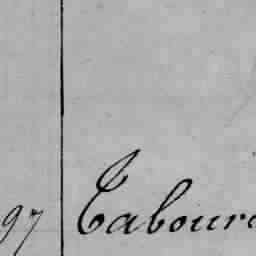 97 Tabour